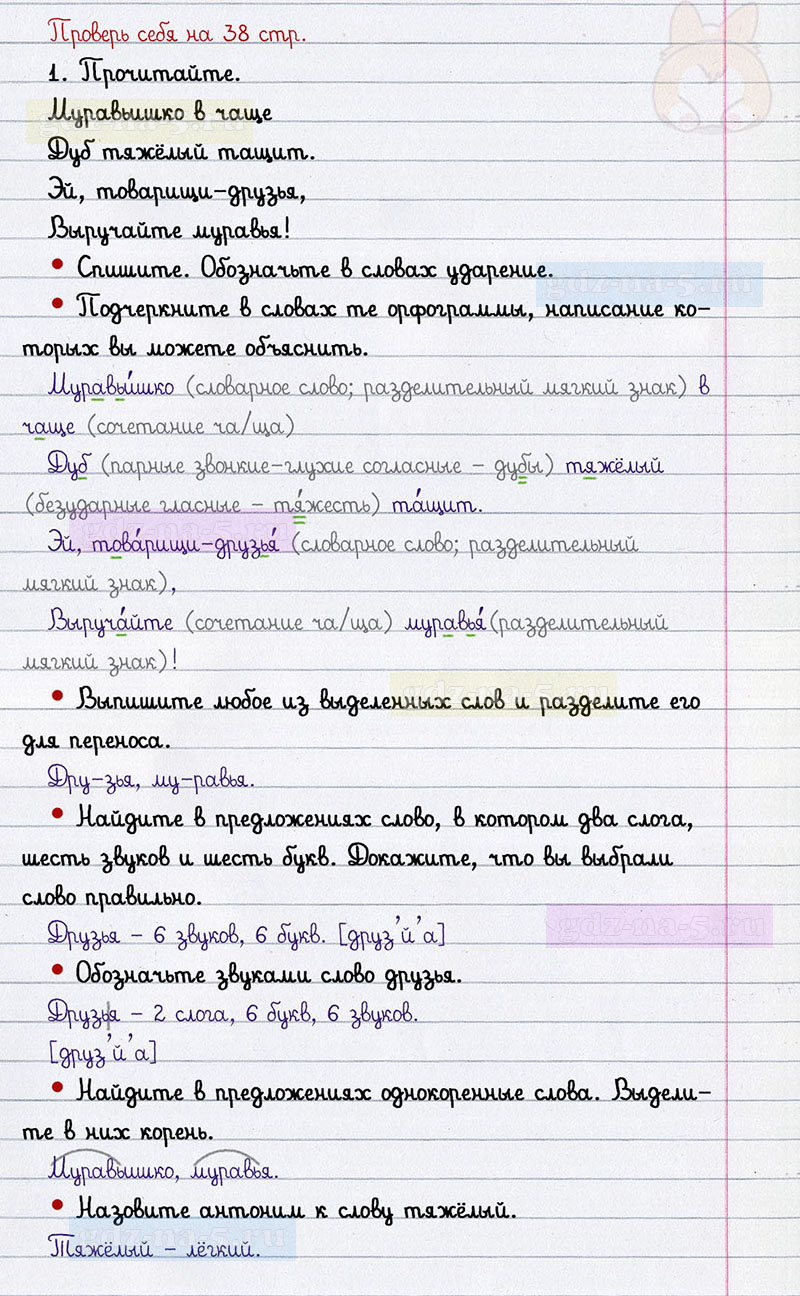 Проверь себя на 38 стр.
1. Прочитайте.
Муравьишко в чаще
Дуб тяжёлый тащит.
Эй, товарищи-друзья,
Выручайте муравья!
• Спишите. Обозначьте в словах ударение.
• Подчеркните в словах те орфограммы, написание ко-
торых вы можете объяснить.
Муравьи́шко (словарное слово; разделительный мягкий знак) в
чаще (сочетание ча/ща)
Дуб (парные звонкие-глухие согласные - дубы) тяжёлый
(безударные гласные - тя́жесть) та́щит.
Эй, това́рищи-друзья́ (словарное слово; разделительный
мягкий знак),
Выруча́йте (сочетание ча/ща) муравья́ (разделительный
мягкий знак)!
• Выпишите любое из выделенных слов и разделите его
для переноса.
Дру-зья, му-равья.
• Найдите в предложениях слово, в котором два слога,
шесть звуков и шесть букв. Докажите, что вы выбрали
слово правильно.
Друзья - 6 звуков, 6 букв. [друз'й'а]
• Обозначьте звуками слово друзья.
Друзья - 2 слога, 6 букв, 6 звуков.
[друз'й'а]
• Найдите в предложениях однокоренные слова. Выдели-
те в них корень.
Муравьишко, муравья.
• Назовите антоним к слову тяжёлый.
Тяжёлый - лёгкий.
gdz-na-5.ru
gdz-na-5.ru
gdz-na-5.ru
gdz-na-5.ru
gdz-na-5.ru
gdz-na-5.ru